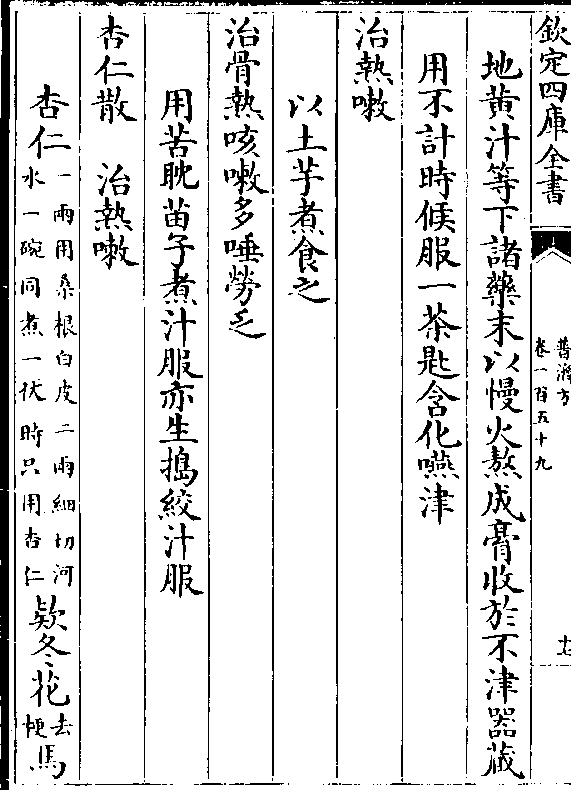 欽定四庫全書
普濟方
卷一百五十九
十七
地黄汁等下諸藥末以慢火熬成膏收於不津器蔵
用不計時候服一茶匙含化嚥津
治熱嗽
以土芋煮食之
治骨熱咳嗽多唾勞乏
用苦耽苗子煮汁服亦生搗絞汁服
杏仁散　治熱嗽
杏仁一兩用桑根白皮二兩細切河水一碗同煮一伏時只用杏仁欵冬花去梗馬